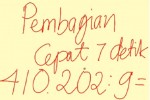 Pembagian
Cepat 7 detik
410.202:9=